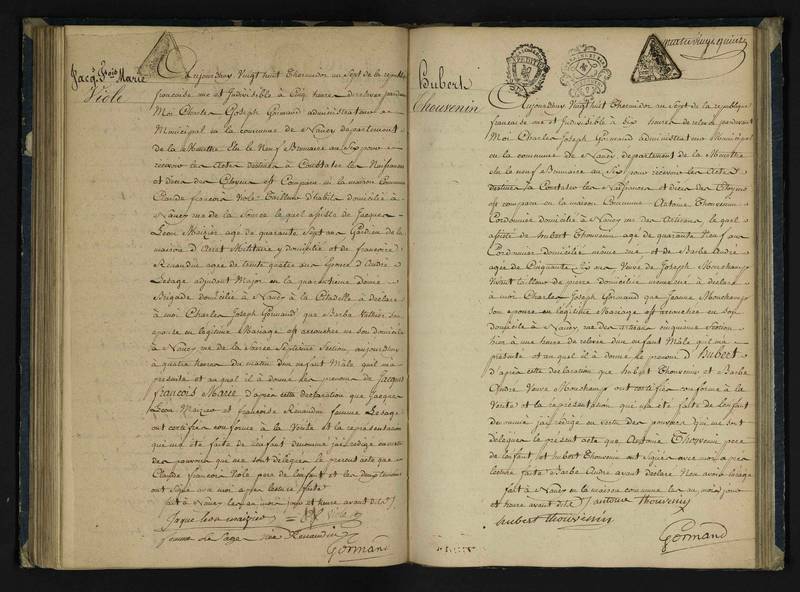 Jacq. Fois Marie
Viole
Aujourdhuy Vingt huit Thermidor an Sept de la republique
francaise une et Indivisible à Cinq heures de relevée pardevant
Moi Charles Joseph Gormand administrateur
Municipal en la commune de Nancy departement
de la Meurthe Elu le Neuf Brumaire an Six pour
recevoir les Actes destinés à Constater les Naissances
et deces des Citoyens est Comparu en la maison Commune
Claude françois Viole Tailleur d'habits domicilié à
Nancy rue de la Source le quel assisté de Jacques
Léon Maizier agé de quarante Sept ans Gardien de la
maison d'arret Militaire y domicilié et de françoise
Renaudin agée de trente quatre ans Epouse d'André
Lesage adjudant Major en la quarantieme demie
Brigade domiciliée à Nancy à la Citadelle à declaré
à moi Charles Joseph Gormand que Barbe
epouse en légitime Mariage est accouchée en son domicile
à Nancy rue de la Source Septieme Section, aujourdhuy
à quatre heures du matin d'un enfant Mâle qu'il m'a
presenté et au quel il à donné les prenoms de Jacques
françois Marie D'après cette declaration que Jacques
Léon Maizier et françoise Renaudin femme Lesage
ont certifiés conforme à la Verité et la representation
qui m'a été faite de l'enfant denommé j'ai redigé en vertu
des pouvoirs qui me sont delegués le present acte que
Claude françois Viole pere de l'enfant et les deux temoins
ont signé avec moi après lecture faite
fait à Nancy les an mois jour et heure avant dits
Jacque leon maizier Viole
femme Le Sage née Renaudin
Gormand
Hubert
Thouvenin
Aujourdhuy Vingt huit Thermidor an Sept de la republique
francaise une et Indivisible à Six heures de relevée pardevant
Moi Charles Joseph Gormand administrateur Municipal
en la commune de Nancy departement de la Meurthe
elu le neuf Brumaire an Six pour recevoir les Actes
destinés à Constater les Naissances et deces des Citoyens
est comparu en la maison Commune Antoine Thouvenin
Cordonnier domicilié à Nancy rue des Artisans le quel
assisté de hubert Thouvenin agé de quarante Neuf ans
Cordonnier domicilié même rue et de Barbe André
agée de Cinquante Six ans Veuve de Joseph Monchamp
Vivant tailleur de pierre domiciliée même rue à declaré
à moi Charles Joseph Gormand que Jeanne Monchamp
son epouse en légitime Mariage est accouchée en son
domicile à Nancy rue des Artisans cinquieme Section
hier à une heure de relevée d'un enfant Mâle qu'il m'a
presenté et au quel il à donné le prenom d'Hubert
D'après cette declaration que hubert Thouvenin et Barbe
André Veuve Monchamp ont certifiés conforme à la
Verité et la representation qui m'a été faite de l'enfant
denommé j'ai redigé en vertu des pouvoirs qui me sont
delegués le present acte que Antoine Thouvenin pere
de l'enfant et hubert Thouvenin ont signés avec moi après
lecture faite Barbe André ayant declaré Non avoir l'usage
fait à Nancy en la maison commune les an, mois, jour
et heure avant dits antoine thouvenin
hubert thouvenin
Gormand